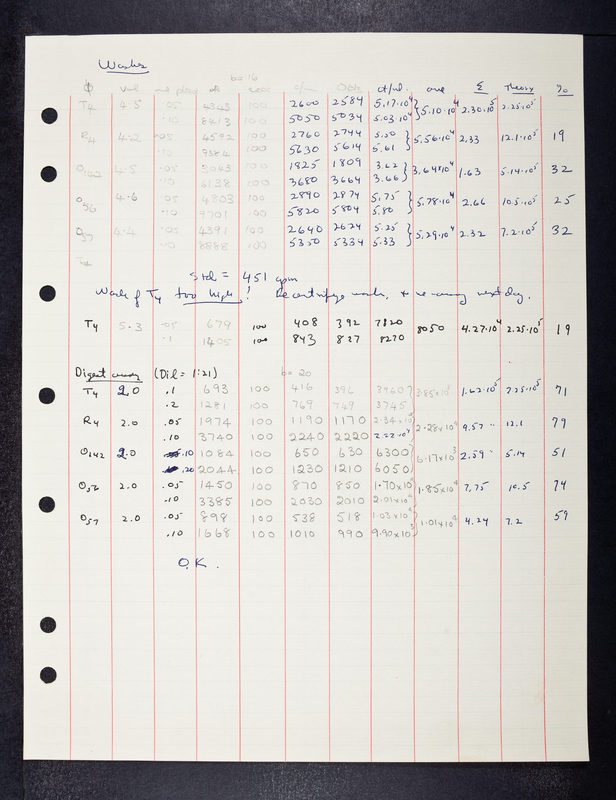 Washes
b = 16
Φ vol ml play ct secs c/m Obs ct/ml. ave Σ Theory %
T4 4.5 .05 4343 100 2600 2584 5.17·10⁴ } 5.10·10⁴ 2.30·10⁵ 2.25·10⁵
.10 8413 100 5050 5034 5.03 10⁴
R4 4.2 .05 4592 100 2760 2744 5.50 } 5.56·10⁴ 2.33 12.1·10⁵ 19
.10 9384 100 5630 5614 5.61
O142 4.5 .05 3043 100 1825 1809 3.62 } 3.64×10⁴ 1.63 5.14·10⁵ 32
.10 6138 100 3680 3664 3.66
O56 4.6 .05 4803 100 2890 2874 5.75 } 5.78·10⁴ 2.66 10.5·10⁵ 25
.10 9701 100 5820 5804 5.80
O57 4.4 .05 4391 100 2640 2624 5.25 } 5.29·10⁴ 2.32 7.2·10⁵ 32
.10 8888 100 5350 5334 5.33
T4
Std = 451 cpm
Wash of T4 too high! Recentrifuge wash, & re assay next day.
T4 5.3 .05 679 100 408 392 7820 8050 4.27·10⁴ 2.25·10⁵ 19
.1 1405 100 843 827 8270
Digest assay (Dil = 1:21) b = 20
T4 2.0 .1 693 100 416 396 3960 } 3.85×10³ 1.62·10⁵ 2.25·10⁵ 71
.2 1281 100 769 749 3745
R4 2.0 .05 1974 100 1190 1170 2.34×10⁴ } 2.28×10⁴ 9.57 " 12.1 79
.10 3740 100 2240 2220 2.22·10⁴
O142 2.0 .10 1084 100 650 630 6300 } 6.17×10³ 2.59 " 5.14 51
.20 2044 100 1230 1210 6050
O56 2.0 .05 1450 100 870 850 1.70×10⁴ } 1.85×10⁴ 7.75 10.5 74
.10 3385 100 2030 2010 2.01×10⁴
O57 2.0 .05 898 100 538 518 1.03×10⁴ } 1.01×10⁴ 4.24 7.2 59
.10 1668 100 1010 990 9.90×10³
O.K.